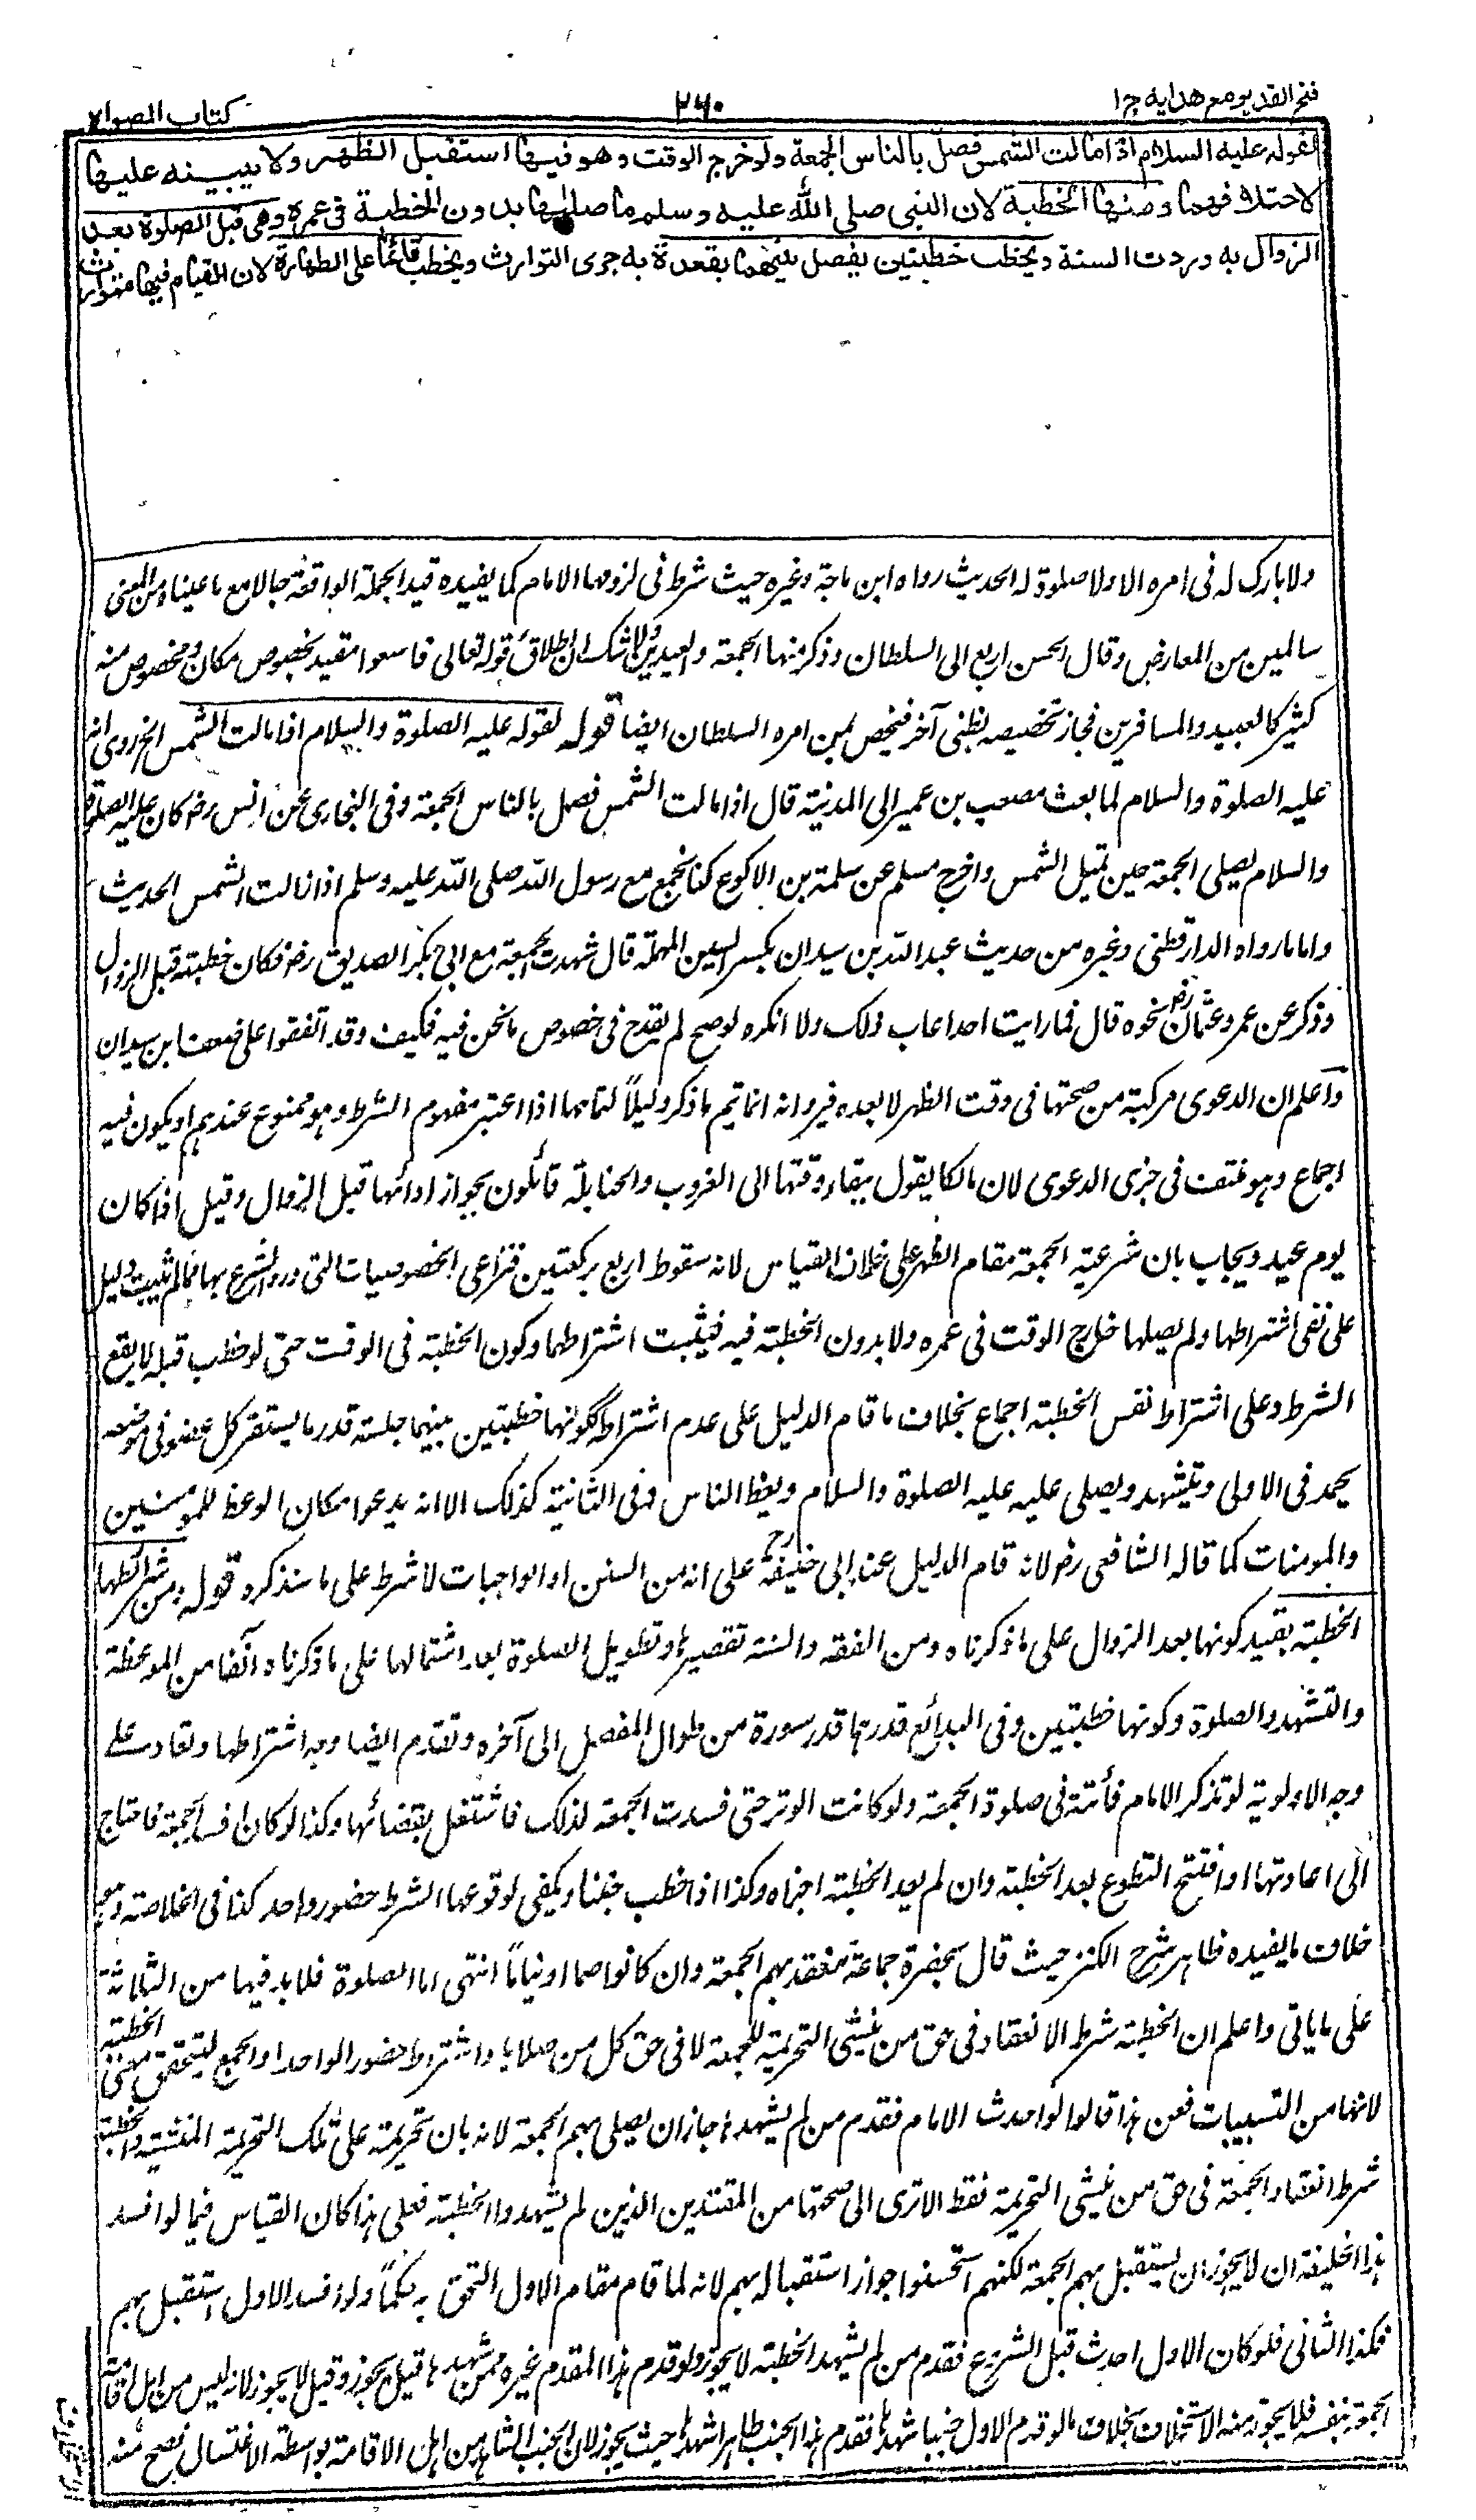 فتح القدير مع هدايه ج ا
٢٦٠
كتاب الصلوة
لقوله عليه السلام اذا مالت الشمس فصل بالناس الجمعة ولو خرج الوقت وهو فيها استقبل الظهر ولا يبينه عليها
لاختلافهما ومنها الخطبة لان النبى صلى الله عليه وسلم ما صلٰها بدون الخطبة فى عمره وهى قبل الصلوة بعد
الزوال به وردت السنة ويخطب خطبتين يفصل بينهما بقعدة به جرى التوارث ويخطب قائما على الطهارة لان القيام فيها متوارث
ولا بارك له فى امره الا ولا صلوة له الحديث رواه ابن ماجة وغيره حيث شرط فى لزومها الامام كما يفيده قيد الجملة الواقعة حالا مع ما عيناه من المعنى
سالمين من المعارض وقال الحسن اربع الى السلطان وذكر منها الجمعة والعيدين ولا شك ان اطلاق قوله تعالى فاسعوا مقيد بخصوص مكان ومخصوص منه
كثير كالعبيد والمسافرين فجاز تخصيصه بظنى آخر فيخص بمن امره السلطان ايضا قوله لقوله عليه الصلوة والسلام اذا مالت الشمس الخ روى انه
عليه الصلوة والسلام لما بعث مصعب بن عمير الى المدينة قال اذا مالت الشمس فصل بالناس الجمعة وفى البخارى عن انس رض كان عليه الصلوة
والسلام يصلى الجمعة حين تميل الشمس واخرج مسلم عن سلمة بن الاكوع كنا نجمع مع رسول الله صلى الله عليه وسلم اذا زالت الشمس الحديث
واما ما رواه الدارقطنى وغيره من حديث عبد الله بن سيدان بكسر السين المهملة قال شهدت الجمعة مع ابى بكر الصديق رض فكان خطبته قبل الزوال
وذكر عن عمر وعثمان رض نحوه قال فما رايت احدا عاب ذلك ولا انكره لو صح لم يقدح فى خصوص ما نحن فيه فكيف وقد اتفقوا على ضعف ابن سيدان
واعلم ان الدعوى مركبة من صحتها فى وقت الظهر لا بعده فيرد انه انما يتم ما ذكر دليلاً لتمامها اذا اعتبر مفهوم الشرط وهو ممنوع عندهم او يكون فيه
اجماع وهو منتف فى جزئى الدعوى لان مالكا يقول ببقاء وقتها الى الغروب والحنابلة قائلون بجواز ادائها قبل الزوال وقيل اذا كان
يوم عيد ويجاب بان شرعية الجمعة مقام الظهر على خلاف القياس لانه سقوط اربع بركعتين فتراعى الخصوصيات التى ورد الشرع بها ما لم يثبت دليل
على نفى اشتراطها ولم يصلها خارج الوقت فى عمره ولا بدون الخطبة فيه فيثبت اشتراطهما وكون الخطبة فى الوقت حتى لو خطب قبله لا يقع
الشرط وعلى اشتراط نفس الخطبة اجماع بخلاف ما قام الدليل على عدم اشتراطه ككونها خطبتين بينهما جلسة قدر ما يستقر كل عضو فى موضعه
يحمد فى الاولى ويتشهد ويصلى عليه عليه الصلوة والسلام ويعظ الناس وفى الثانية كذلك الا انه يدعوا مكان الوعظ للمومنين
والمومنات كما قاله الشافعى رض لانه قام الدليل عند ابى حنيفة رح على انه من السنن او الواجبات لا شرط على ما سنذكره قوله ومن شرائطها
الخطبة بقيد كونها بعد الزوال على ما ذكرناه ومن الفقه والسنة تقصيرها وتطويل الصلوة بعد اشتمالها على ما ذكرناه آنفا من الموعظة
والتشهد والصلوة وكونها خطبتين وفى البدائع قدرهما قدر سورة من طوال المفصل الى آخره وتقدم ايضا وجه اشتراطها وتعاد على
وجه الاولوية لو تذكر الامام فائتة فى صلوة الجمعة ولو كانت الوتر حتى فسدت الجمعة لذلك فاشتغل بقضائها وكذا لو كان افسد الجمعة فاحتاج
الى اعادتها او افتتح التطوع بعد الخطبة وان لم يعد الخطبة اجزاه وكذا اذا خطب جنبا ويكفى لوقوعها الشرط حضور واحد كذا فى الخلاصة وهو
خلاف ما يفيده ظاهر شرح الكنز حيث قال بحضرة جماعة تنعقد بهم الجمعة وان كانوا صما او نياماً انتهى اما الصلوة فلا بد فيها من الثلاثة
على ما ياتى واعلم ان الخطبة شرط الانعقاد فى حق من ينشئ التحريمة للجمعة لا فى حق كل من صلاها واشتراط حضور الواحد او الجمع ليتحقق معنى الخطبة
لانها من النسبيات فعن هذا قالوا لو احدث الامام فقدم من لم يشهدها جاز ان يصلى بهم الجمعة لانه بان تحريمته على تلك التحريمة المنشئة والخطبة
شرط انعقاد الجمعة فى حق من ينشئ التحريمة فقط الا ترى الى صحتها من المقتدين الذين لم يشهدوا الخطبة فعلى هذا كان القياس فيما لو افسد
هذا الخليفة ان لا يجوز ان يستقبل بهم الجمعة لكنهم استحسنوا جواز استقباله بهم لانه لما قام مقام الاول التحق به حكماً ولو افسد الاول استقبل بهم
فكذا الثانى فلو كان الاول احدث قبل الشروع فقدم من لم يشهد الخطبة لا يجوز ولو قدم هذا المقدم غيره ممن شهدها قيل يجوز وقيل لا يجوز لانه ليس من اهل اقامة
الجمعة بنفسه فلا يجوز منه الاستخلاف بخلاف ما لو قدم الاول جنبا شهدها فقدم هذا الجنب طاهرا شهدها حيث يجوز لان الجنب الشاهد من اهل الاقامة بواسطة الاغتسال فصح منه
الاستخلاف